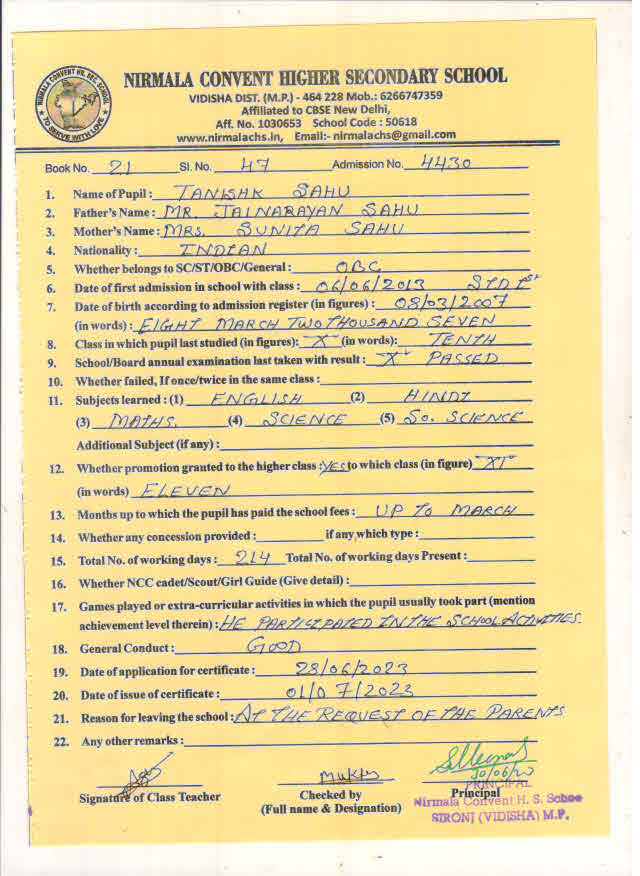 NIRMALA CONVENT HR. SEC. SCHOOL
TO SERVE WITH LOVE
NIRMALA CONVENT HIGHER SECONDARY SCHOOL
VIDISHA DIST. (M.P.) - 464 228 Mob.: 6266747359
Affiliated to CBSE New Delhi,
Aff. No. 1030653 School Code : 50618
www.nirmalachs.in, Email:- nirmalachs@gmail.com
Book No. 21 Sl. No. 47 Admission No. 4430
1. Name of Pupil : TANISHK SAHU
2. Father's Name : MR. JAINARAYAN SAHU
3. Mother's Name : MRS. SUNITA SAHU
4. Nationality : INDIAN
5. Whether belongs to SC/ST/OBC/General : OBC
6. Date of first admission in school with class : 06/06/2013 STD Ist
7. Date of birth according to admission register (in figures) : 08/03/2007
(in words) : EIGHT MARCH TWO THOUSAND SEVEN
8. Class in which pupil last studied (in figures): X (in words): TENTH
9. School/Board annual examination last taken with result : X PASSED
10. Whether failed, If once/twice in the same class :
11. Subjects learned : (1) ENGLISH (2) HINDI
(3) MATHS. (4) SCIENCE (5) SO. SCIENCE
Additional Subject (if any) :
12. Whether promotion granted to the higher class : YES to which class (in figure) XI
(in words) ELEVEN
13. Months up to which the pupil has paid the school fees : UP TO MARCH
14. Whether any concession provided : if any, which type :
15. Total No. of working days : 214 Total No. of working days Present :
16. Whether NCC cadet/Scout/Girl Guide (Give detail) :
17. Games played or extra-curricular activities in which the pupil usually took part (mention
achievement level therein) : HE PARTISIPATED IN THE SCHOOL ACTIVITIES.
18. General Conduct : GOOD
19. Date of application for certificate : 28/06/2023
20. Date of issue of certificate : 01/07/2023
21. Reason for leaving the school : AT THE REQUEST OF THE PARENTS
22. Any other remarks :
Signature of Class Teacher
Checked by
(Full name & Designation)
Principal
PRINCIPAL
Nirmala Convent H. S. Schoo
SIRONJ (VIDISHA) M.P.